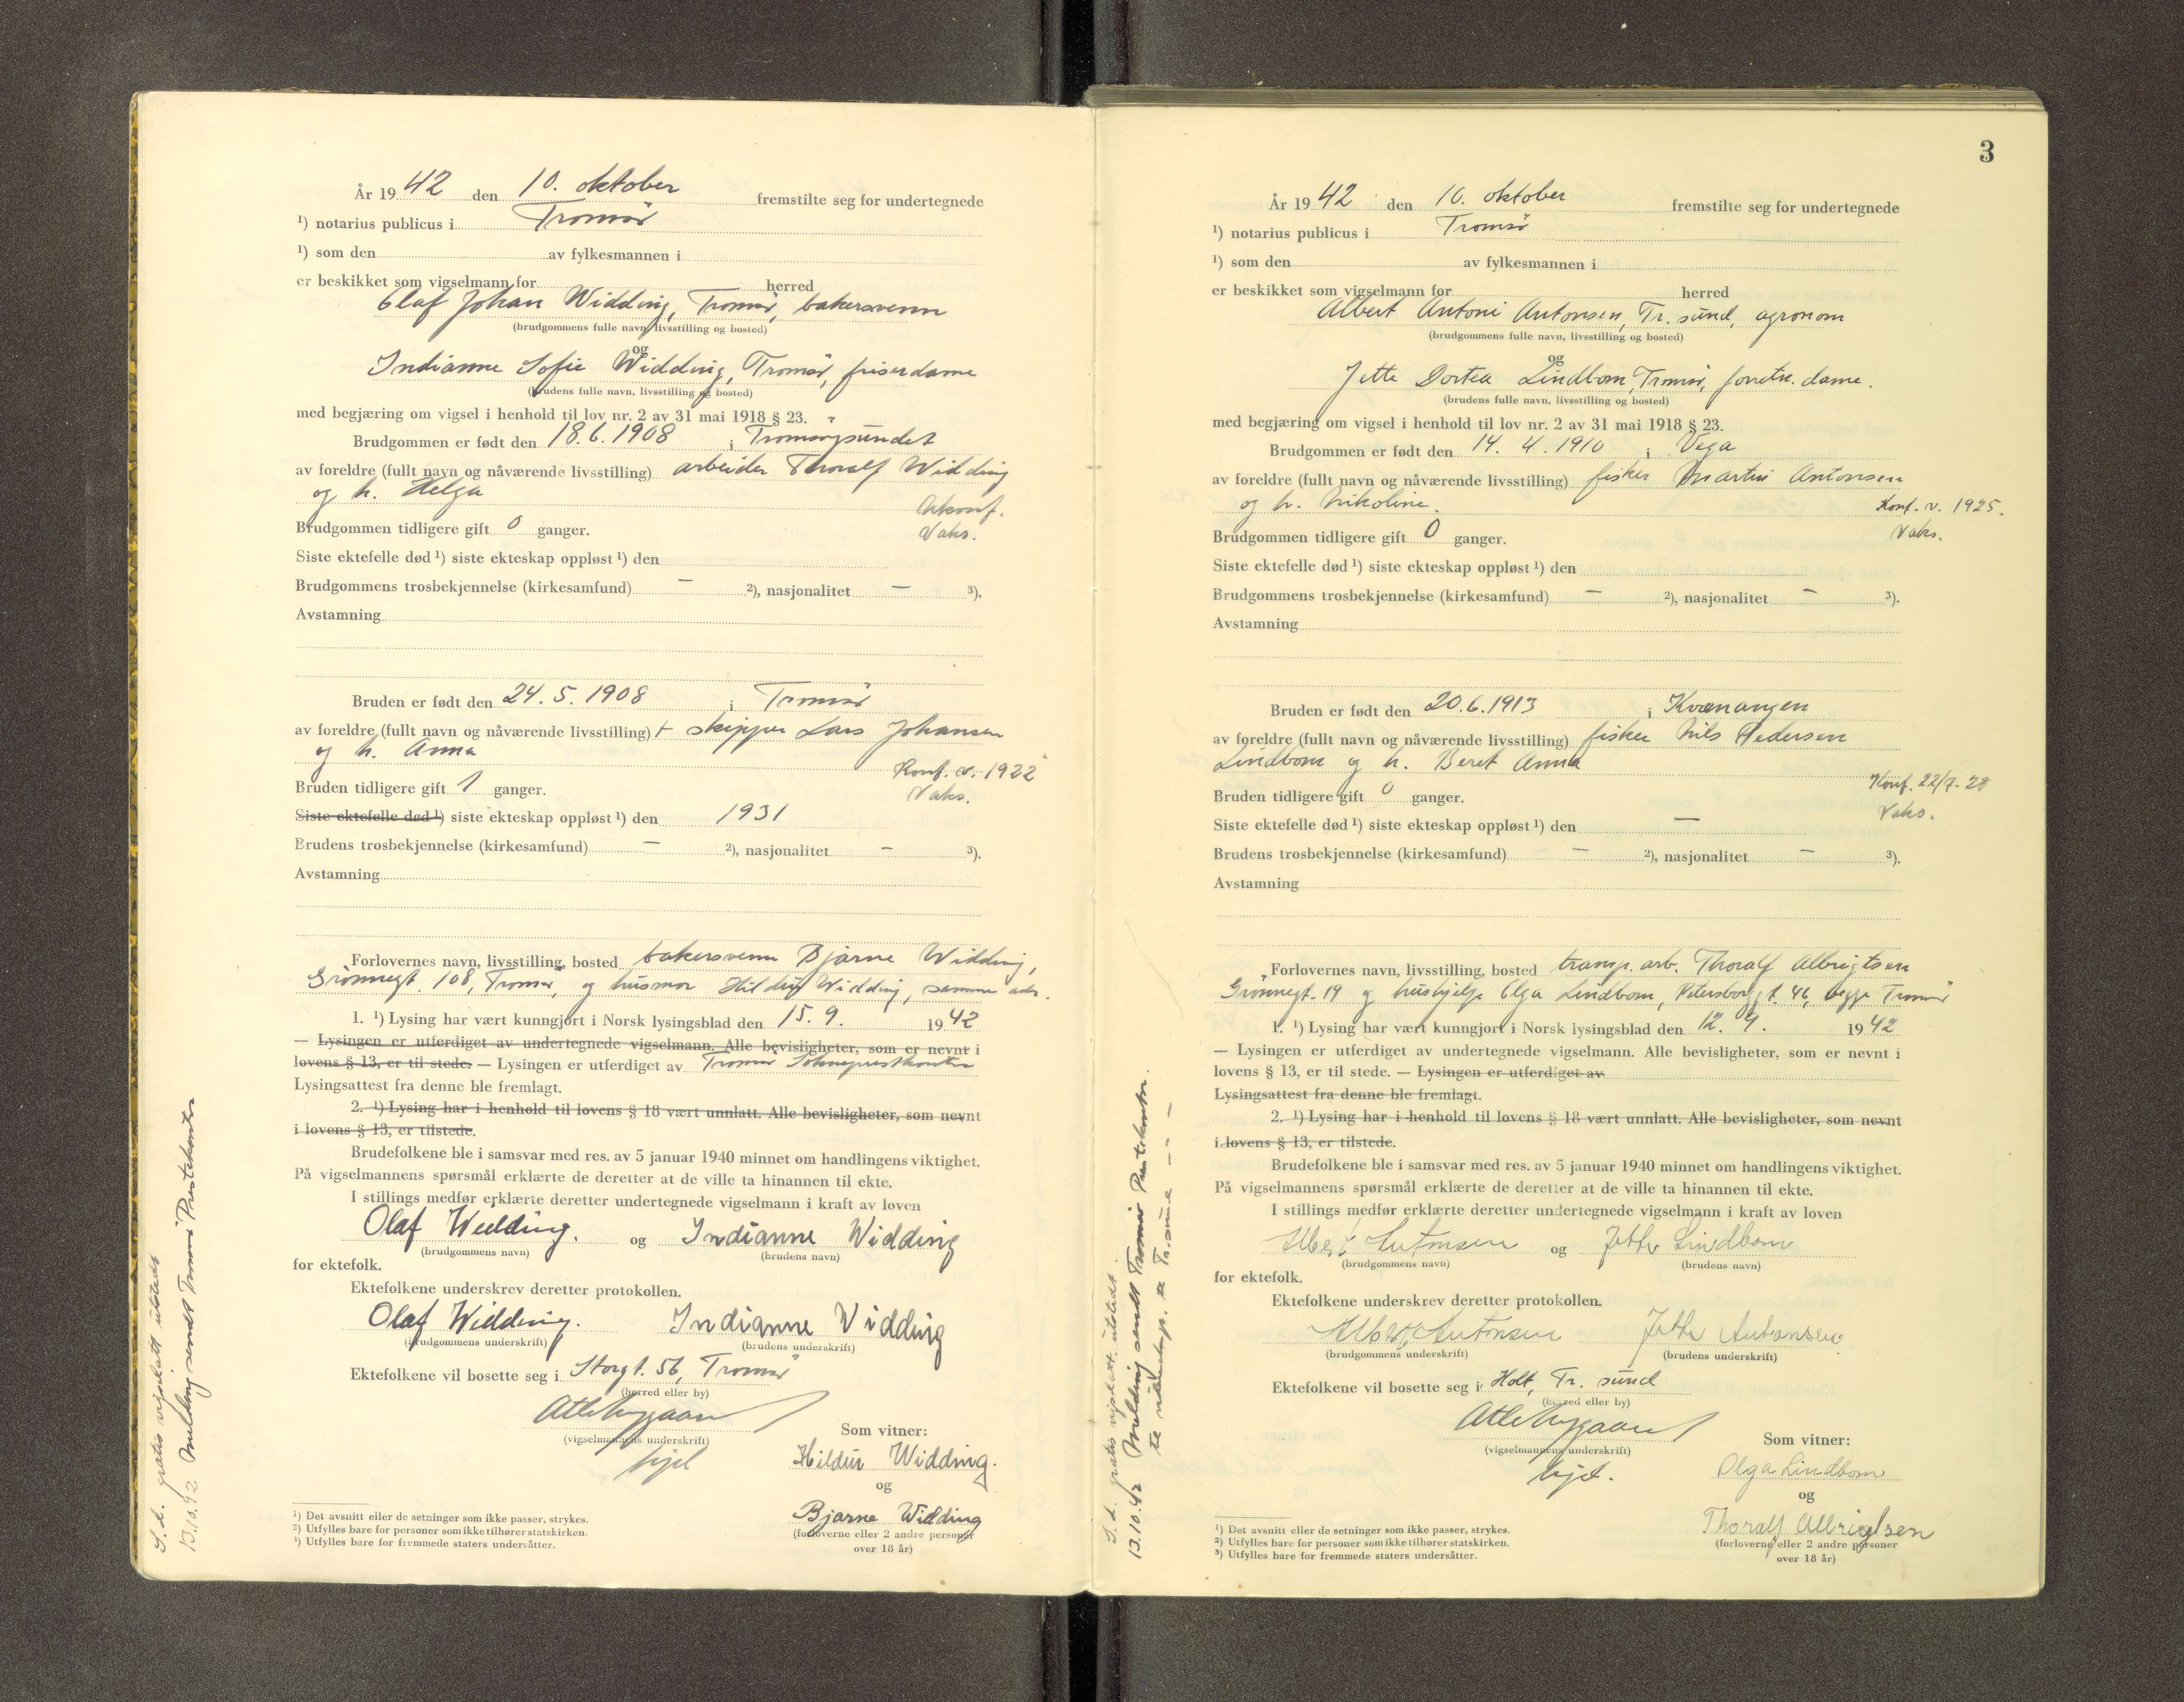 År 19 42 den 10. oktober fremstilte seg for undertegnede
¹) notarius publicus i Tromsø
¹) som den av fylkesmannen i
er beskikket som vigselmann for herred
Olaf Johan Widding, Tromsø, bakersvenn
(brudgommens fulle navn, livsstilling og bosted)
og
Indianne Sofie Widding, Tromsø, friserdame
(brudens fulle navn, livsstilling og bosted)
med begjæring om vigsel i henhold til lov nr. 2 av 31 mai 1918 § 23.
Brudgommen er født den 18.6.1908 i Tromsøysundet
av foreldre (fullt navn og nåværende livsstilling) arbeider Thoralf Widding
og h. Helga
Ukonf.
Brudgommen tidligere gift 0 ganger.
Vaks.
Siste ektefelle død ¹) siste ekteskap oppløst ¹) den
Brudgommens trosbekjennelse (kirkesamfund) — ²), nasjonalitet — ³).
Avstamning
Bruden er født den 24.5.1908 i Tromsø
av foreldre (fullt navn og nåværende livsstilling) + skipper Lars Johansen
og h. Anna
Konf. v. 1922
Bruden tidligere gift 1 ganger.
Vaks.
Siste ektefelle død ¹) siste ekteskap oppløst ¹) den 1931
Brudens trosbekjennelse (kirkesamfund) — ²), nasjonalitet — ³).
Avstamning
Forlovernes navn, livsstilling, bosted bakersvenn Bjarne Widding,
Grønnegt. 108, Tromsø, og husmor Hildur Widding, samme adr.
1. ¹) Lysing har vært kunngjort i Norsk lysingsblad den 15.9. 19 42
— Lysingen er utferdiget av undertegnede vigselmann. Alle bevisligheter, som er nevnt i
lovens § 13, er til stede. — Lysingen er utferdiget av Tromsø Sokneprestkontor
Lysingsattest fra denne ble fremlagt.
2. ¹) Lysing har i henhold til lovens § 18 vært unnlatt. Alle bevisligheter, som nevnt
i lovens § 13, er tilstede.
Brudefolkene ble i samsvar med res. av 5 januar 1940 minnet om handlingens viktighet.
På vigselmannens spørsmål erklærte de deretter at de ville ta hinannen til ekte.
I stillings medfør erklærte deretter undertegnede vigselmann i kraft av loven
Olaf Widding. og Indianne Widding
(brudgommens navn) (brudens navn)
for ektefolk.
Ektefolkene underskrev deretter protokollen.
Olaf Widding. Indianne Widding
(brudgommens underskrift) (brudens underskrift)
Ektefolkene vil bosette seg i Storgt. 56, Tromsø
(herred eller by)
(vigselmannens underskrift)
Som vitner:
Hildur Widding.
og
Bjarne Widding
(forloverne eller 2 andre personer
over 18 år)
¹) Det avsnitt eller de setninger som ikke passer, strykes.
²) Utfylles bare for personer som ikke tilhører statskirken.
³) Utfylles bare for fremmede staters undersåtter.
S. d. gratis vigselatt utstedt
13.10.42 Melding sendt Tromsø Prestekontor
3
År 19 42 den 10. oktober fremstilte seg for undertegnede
¹) notarius publicus i Tromsø
¹) som den av fylkesmannen i
er beskikket som vigselmann for herred
Albert Antoni Antonsen, Tr. sund, agronom
(brudgommens fulle navn, livsstilling og bosted)
og
Jette Dortea Lindbom, Tromsø, forretn. dame.
(brudens fulle navn, livsstilling og bosted)
med begjæring om vigsel i henhold til lov nr. 2 av 31 mai 1918 § 23.
Brudgommen er født den 14. 4. 1910 i Vega
av foreldre (fullt navn og nåværende livsstilling) fisker Martin Antonsen
og h. Nikoline.
Konf. v. 1925.
Brudgommen tidligere gift 0 ganger.
Vaks.
Siste ektefelle død ¹) siste ekteskap oppløst ¹) den
Brudgommens trosbekjennelse (kirkesamfund) — ²), nasjonalitet — ³).
Avstamning
Bruden er født den 20.6.1913 i Kvænangen
av foreldre (fullt navn og nåværende livsstilling) fisker Nils Pedersen
Lindbom og h. Beret Anna
Konf. 22/7-28
Bruden tidligere gift 0 ganger.
Vaks.
Siste ektefelle død ¹) siste ekteskap oppløst ¹) den —
Brudens trosbekjennelse (kirkesamfund) — ²), nasjonalitet — ³).
Avstamning
Forlovernes navn, livsstilling, bosted transp. arb. Thoralf Albrigtsen
Grønnegt. 19 og hushjelp Olga Lindbom, Petersborggt. 46, begge Tromsø
1. ¹) Lysing har vært kunngjort i Norsk lysingsblad den 12. 9. 19 42
— Lysingen er utferdiget av undertegnede vigselmann. Alle bevisligheter, som er nevnt i
lovens § 13, er til stede. — Lysingen er utferdiget av
Lysingsattest fra denne ble fremlagt.
2. ¹) Lysing har i henhold til lovens § 18 vært unnlatt. Alle bevisligheter, som nevnt
i lovens § 13, er tilstede.
Brudefolkene ble i samsvar med res. av 5 januar 1940 minnet om handlingens viktighet.
På vigselmannens spørsmål erklærte de deretter at de ville ta hinannen til ekte.
I stillings medfør erklærte deretter undertegnede vigselmann i kraft av loven
Albert Antonsen og Jette Lindbom
(brudgommens navn) (brudens navn)
for ektefolk.
Ektefolkene underskrev deretter protokollen.
Albert Antonsen Jette Antonsen
(brudgommens underskrift) (brudens underskrift)
Ektefolkene vil bosette seg i Holt, Tr. sund
(herred eller by)
(vigselmannens underskrift)
Som vitner:
Olga Lindbom
og
Thoralf Albrigtsen
(forloverne eller 2 andre personer
over 18 år)
¹) Det avsnitt eller de setninger som ikke passer, strykes.
²) Utfylles bare for personer som ikke tilhører statskirken.
³) Utfylles bare for fremmede staters undersåtter.
S. d. gratis vigselatt. utstedt.
13.10.42 Melding sendt Tromsø Prestekontor.